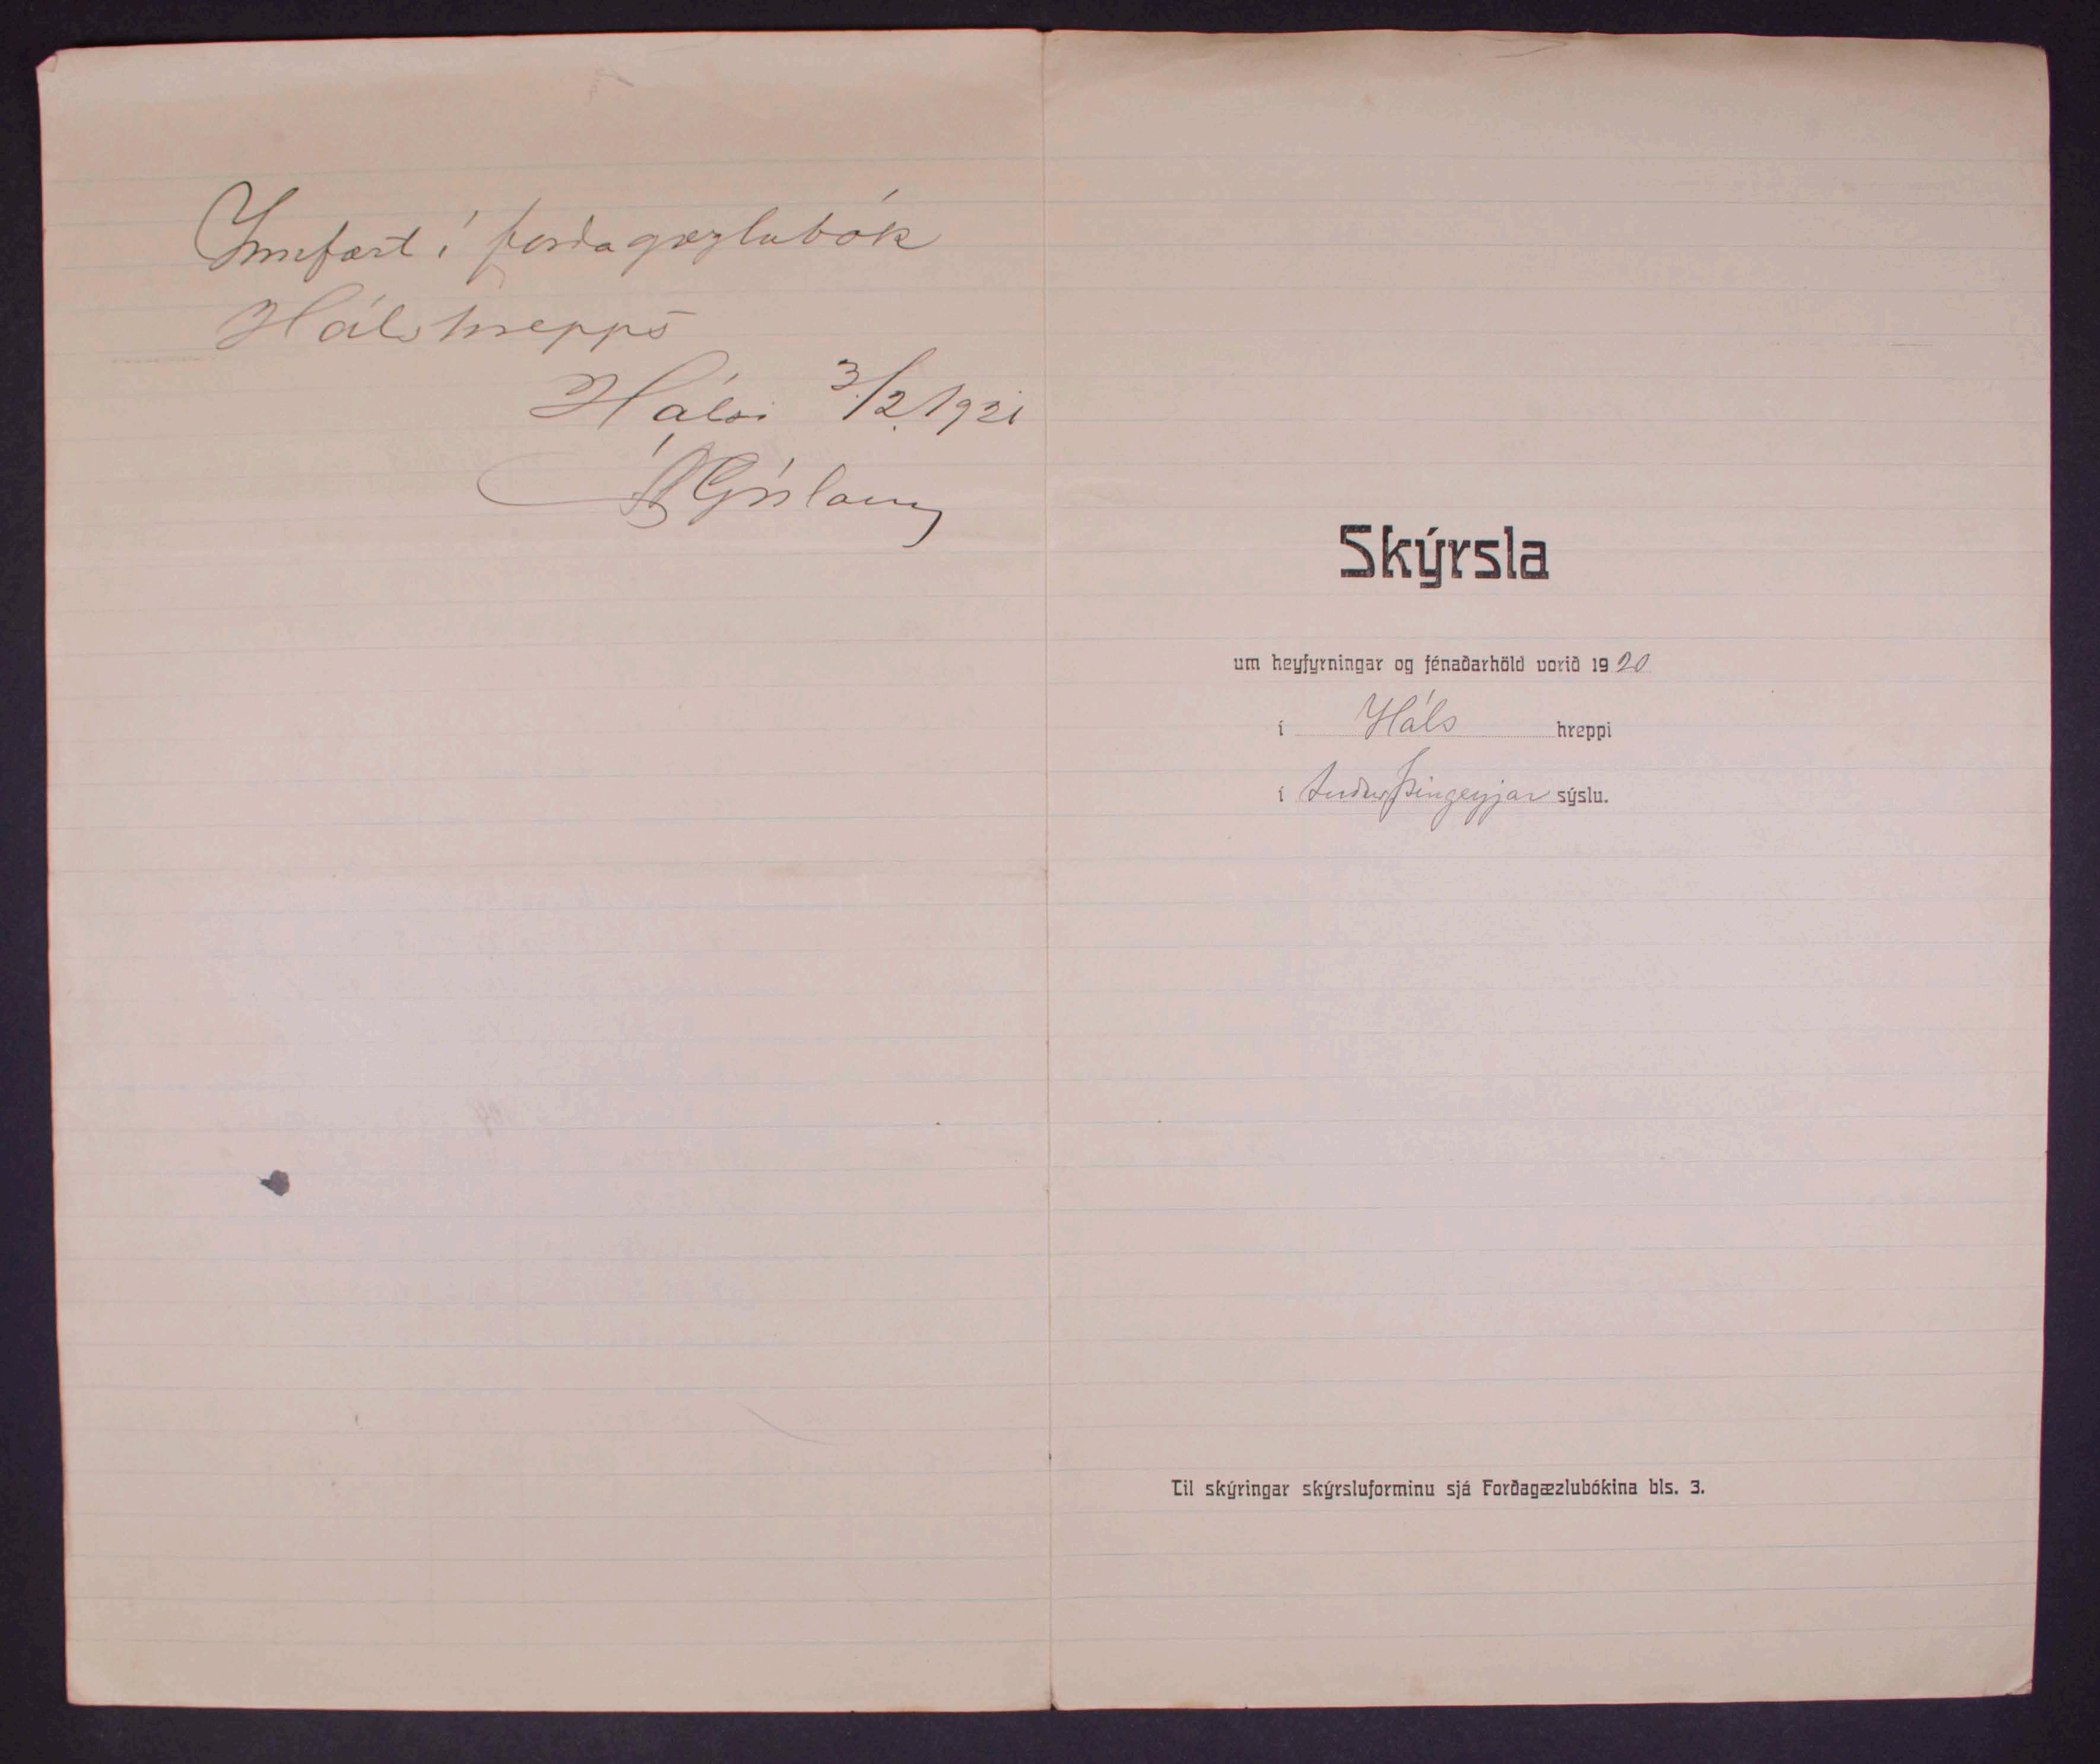 Innfært í forðagæzlubók
Hálshrepps
Hálsi 3/2 1921
Á Gíslason
Skýrsla
um heyfyrningar og fénaðarhöld vorið 1920
í Háls hreppi
í SuðurÞingeyjar sýslu.
Til skýringar skýrsluforminu sjá Forðagæzlubókina bls. 3.